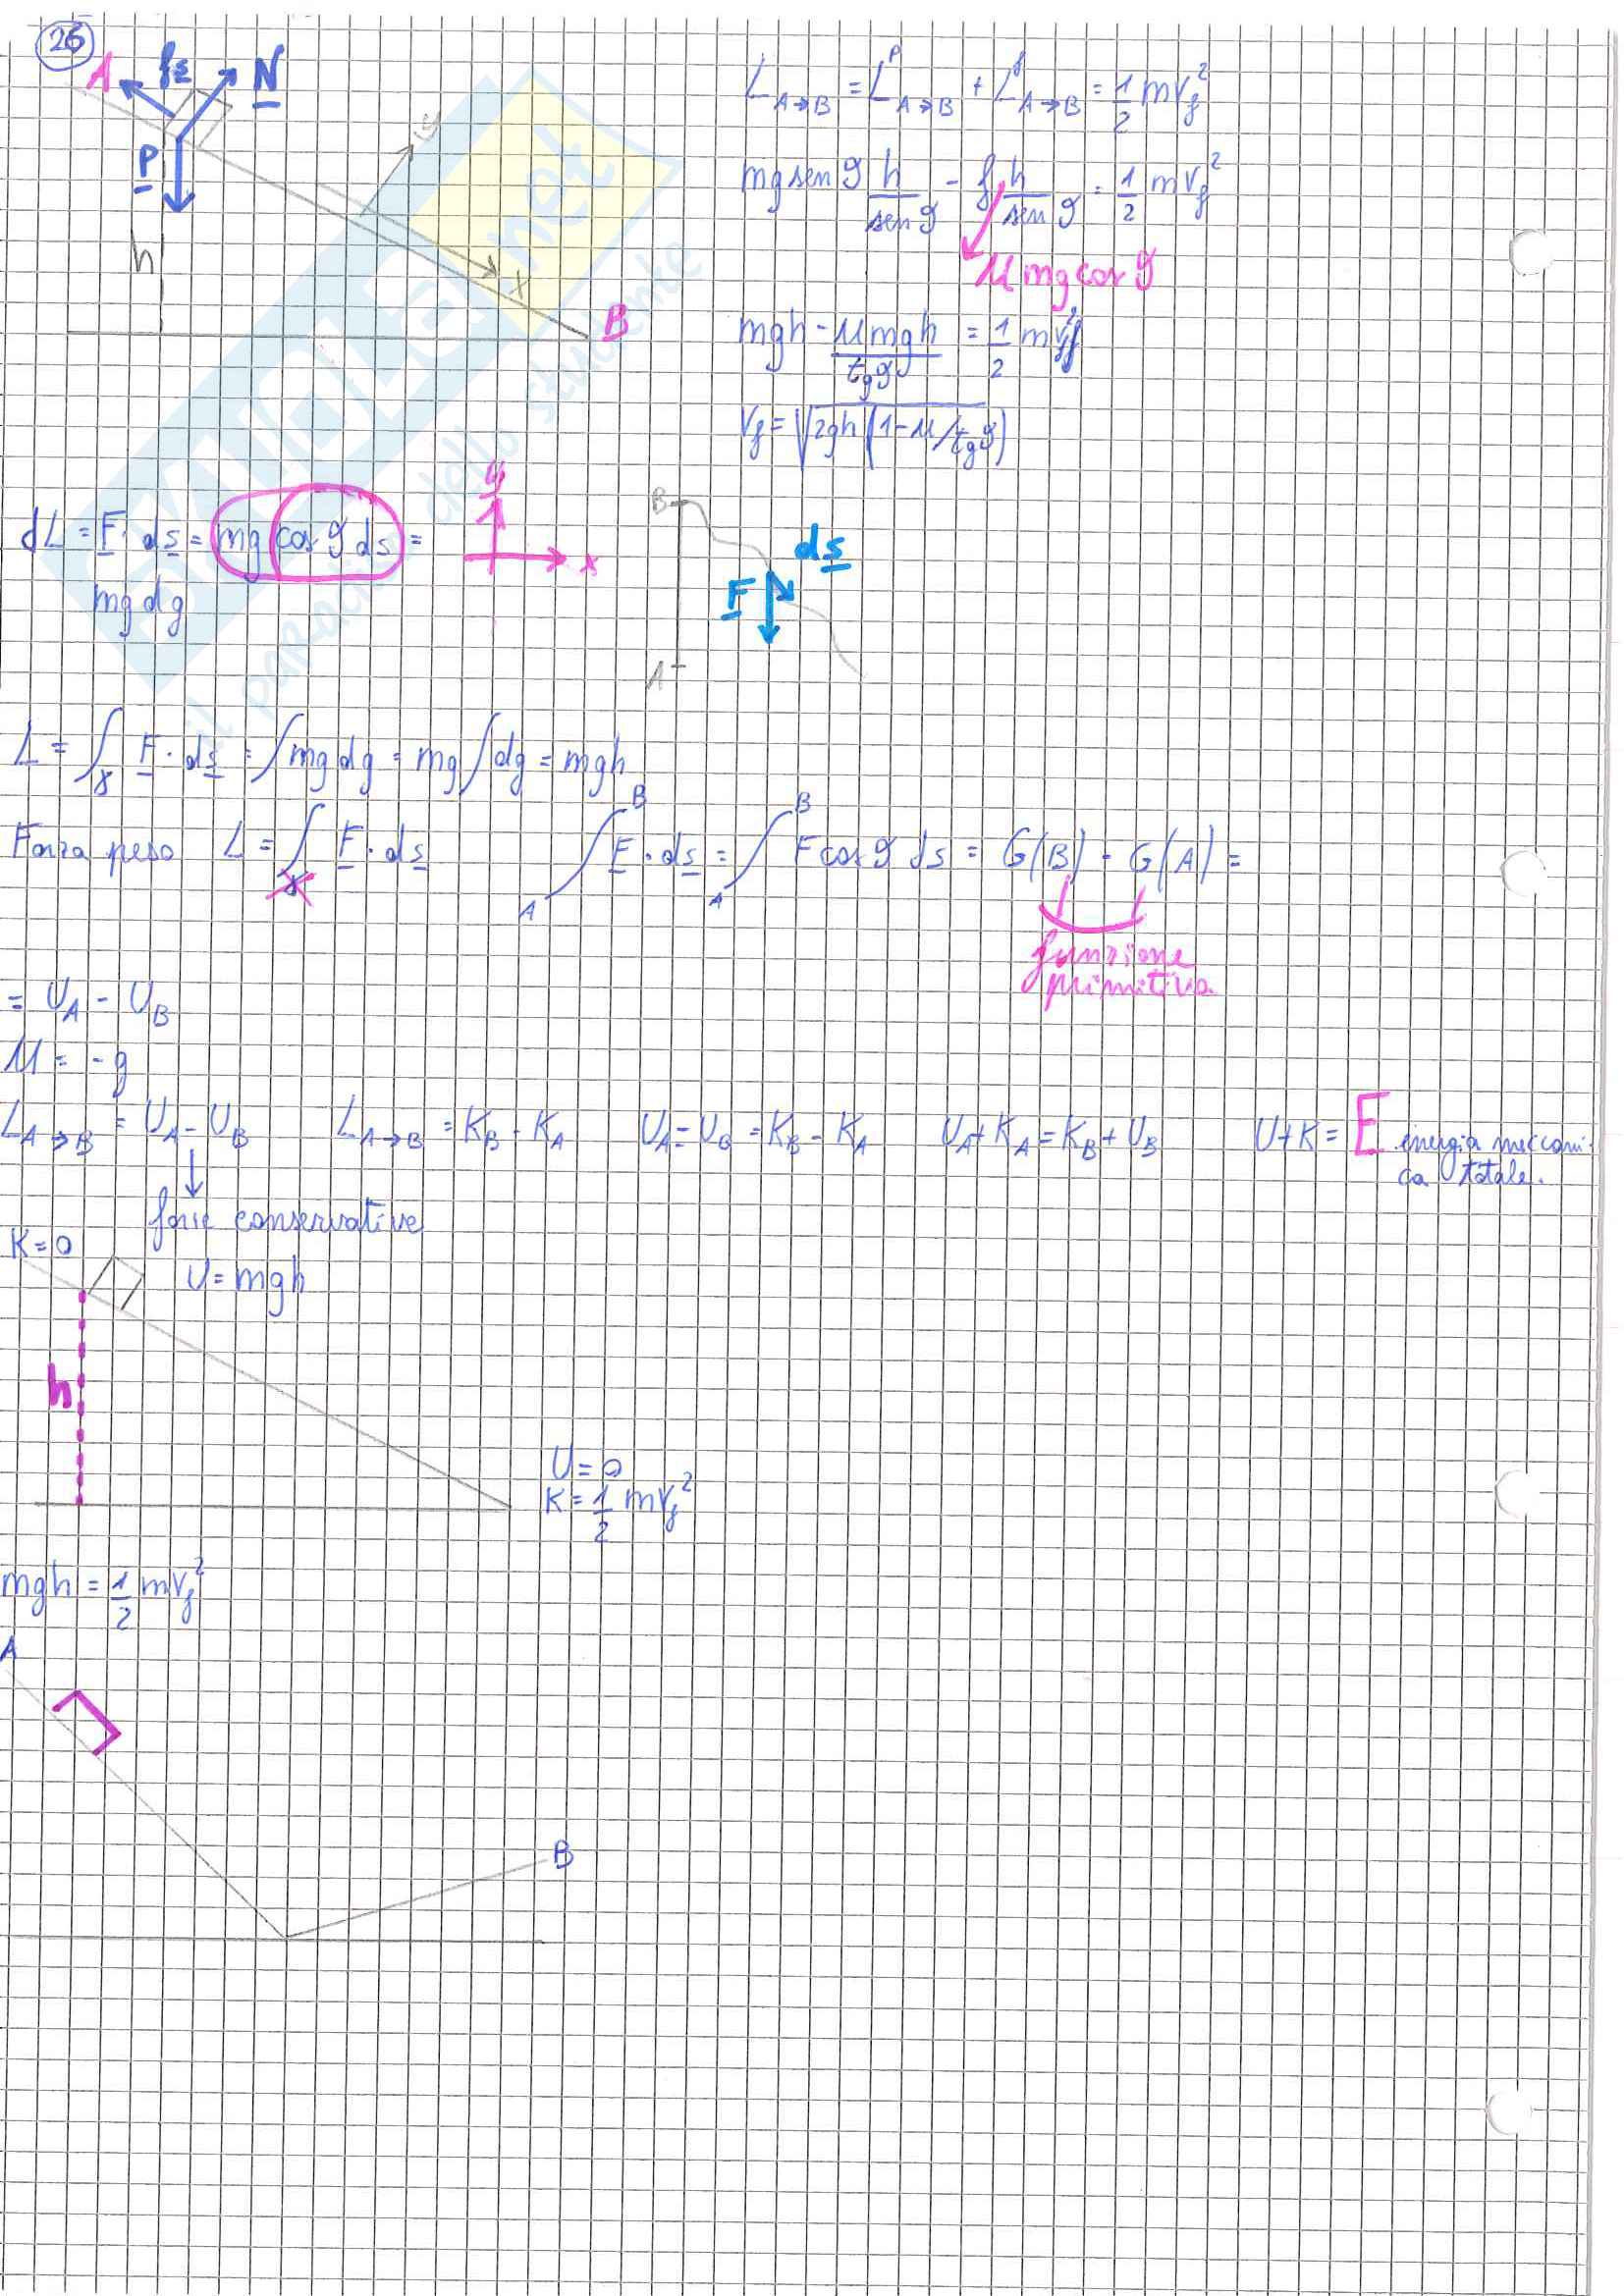 26
A fs N
P
y
h
x
B
L A→B = L^P A→B + L^f A→B = 1/2 m v_f^2
mg sen ϑ h/sen ϑ - f h/sen ϑ = 1/2 m v_f^2
μ mg cos ϑ
mgh - μmgh/tgϑ = 1/2 m v_f^2
v_f = √2gh(1-μ/tgϑ)
dL = F · ds = mg cos ϑ ds =
mg dy
y
x
B
ds
F
A
L = ∫γ F · ds = ∫ mg dy = mg ∫ dy = mgh
Forza peso L = ∫γ F · ds ∫_A^B F · ds = ∫_A^B F cos ϑ ds = G(B) - G(A) =
funzione
primitiva
= U_A - U_B
U = -g
L A→B = U_A - U_B L A→B = K_B - K_A U_A - U_B = K_B - K_A U_A + K_A = K_B + U_B U+K = E energia meccani-
ca totale.
forze conservative
K=0
U = mgh
h
U=0
K = 1/2 m v_f^2
mgh = 1/2 m v_f^2
A
B
SKUOLA.net
il paradiso dello studente